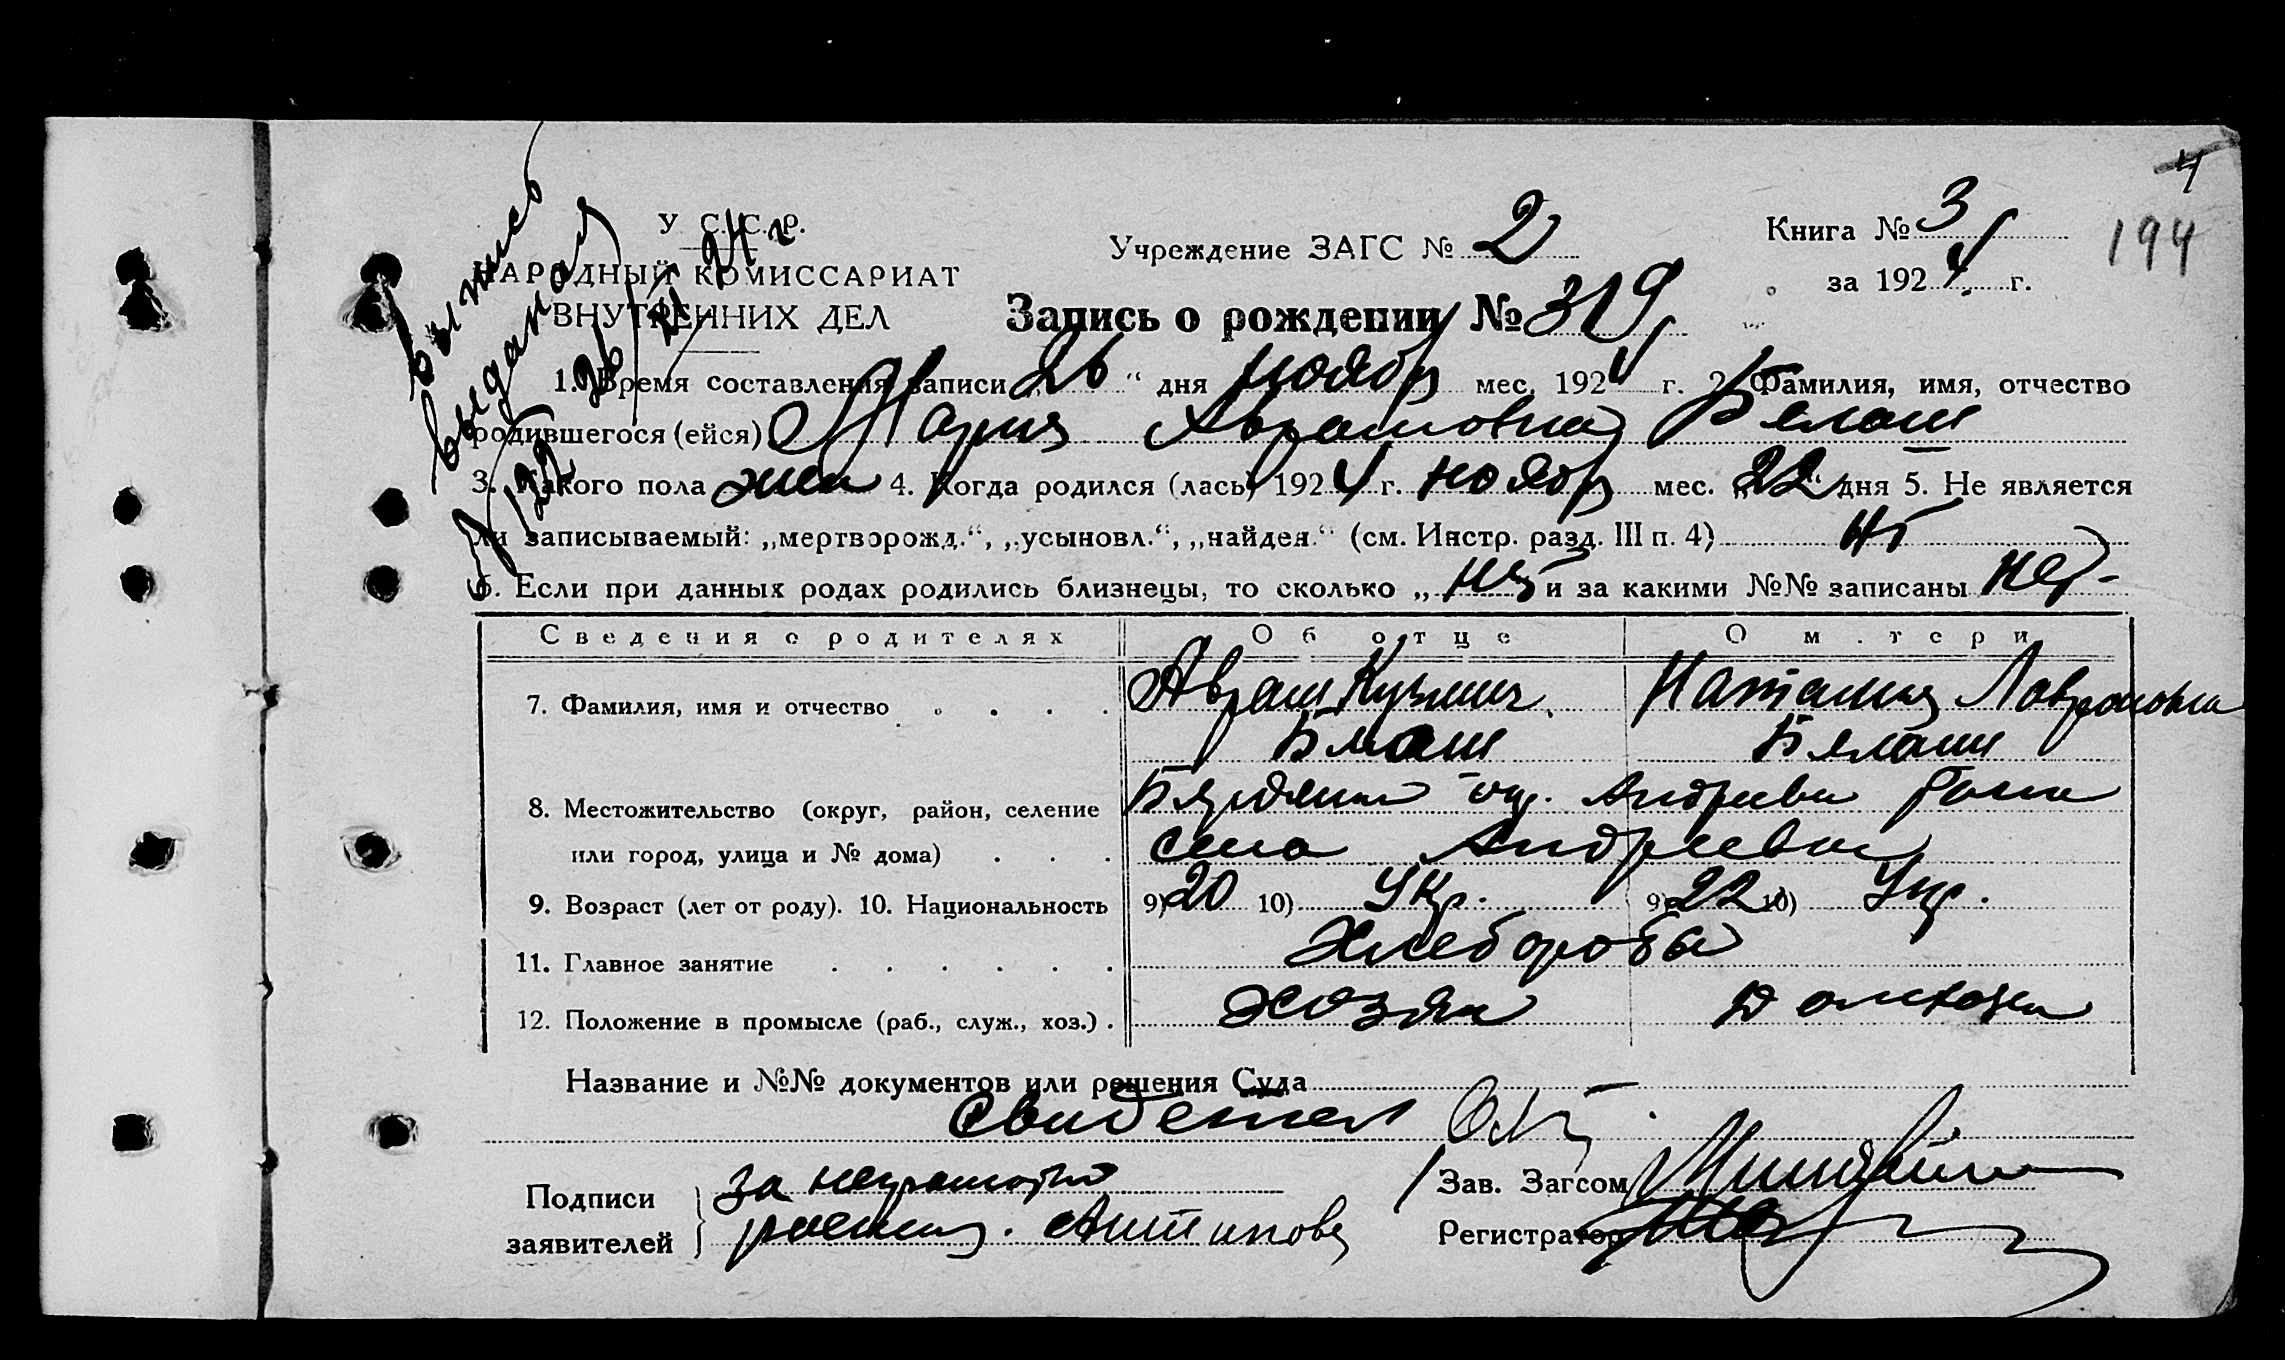 4
194
У. С. С. Р.
НАРОДНЫЙ КОМИССАРИАТ
ВНУТРЕННИХ ДЕЛ
выпись
выдана
26/XI 24 г
Учреждение ЗАГС № 2
Книга № 3
за 1924 г.
Запись о рождении № 319
1. Время составления записи „26“ дня ноябр мес. 1924 г. 2. Фамилия, имя, отчество
родившегося (ейся) Мария Аврамовна Белаш
3. Какого пола жен 4. Когда родился (лась) 1924 г. ноябр мес. „22“ дня 5. Не является
ли записываемый: „мертворожд.“, „усыновл.“, „найден.“ (см. Инстр. разд. III п. 4) нт
6. Если при данных родах родились близнецы, то сколько „нет и за какими №№ записаны нет-
Сведения о родителях Об отце О м.тери
7. Фамилия, имя и отчество Аврам Кузмич Наталия Лаврановна
Белаш Белаш
8. Местожительство (округ, район, селение Бердянск окр. Андреев
или город, улица и № дома) село Андреевка
9. Возраст (лет от роду). 10. Национальность 9) 20 10) Укр. 9) 22 10) Укр.
11. Главное занятие Хлеборобы
12. Положение в промысле (раб., служ., хоз.) хозяин домхозяй
Название и №№ документов или решения Суда
Свидетел
Подписи заявителей за неграмотн
роспис. Антипове
Зав. Загсом
Регистратор